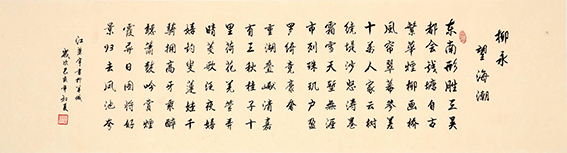 柳永
望海潮
东南形胜三吴
都会钱塘自古
繁华烟柳画桥
风帘翠幕参差
十万人家云树
绕堤沙怒涛卷
霜雪天堑无涯
市列珠玑户盈
罗绮竞豪奢
重湖叠巘清嘉
有三秋桂子十
里荷花羌管弄
晴菱歌泛夜嬉
嬉钓叟莲娃千
骑拥高牙乘醉
听箫鼓吟赏烟
霞异日图将好
景归去凤池夸
江 书于羊城
岁次己亥年初夏